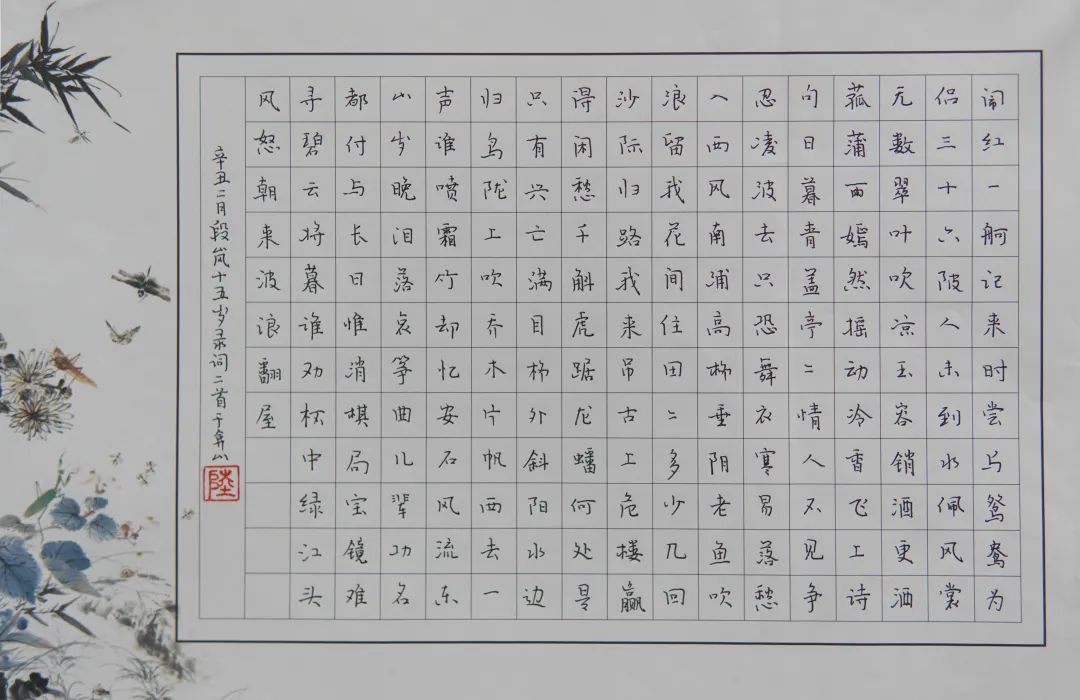 闹红一舸记来时尝与鸳鸯为
侣三十六陂人未到水佩风裳
无数翠叶吹凉玉容销酒更洒
菰蒲雨嫣然摇动冷香飞上诗
句日暮青盖亭二情人不见争
忍凌波去只恐舞衣寒易落愁
入西风南浦高柳垂阴老鱼吹
浪留我花间住田二多少几回
沙际归路我来吊古上危楼赢
得闲愁千斛虎踞龙蟠何处是
只有兴亡满目柳外斜阳水边
归鸟陇上吹乔木片帆西去一
声谁喷霜竹却忆安石风流东
山岁晚泪落哀筝曲儿辈功名
都付与长日惟消棋局宝镜难
寻碧云将暮谁劝杯中绿江头
风怒朝来波浪翻屋
辛丑二月段岚十五岁录词二首于弁山
陸